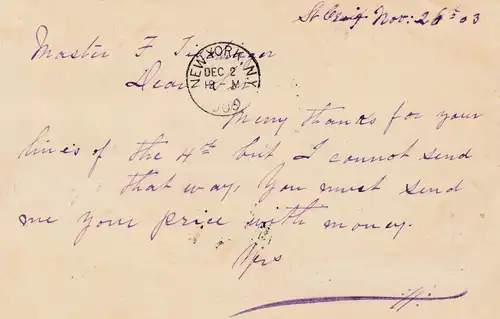 St Croix Nov: 26th 03
Master F
NEW YORK, N.Y.
DEC 2
Dear Sir
Many thanks for your
lines of the 4th but I cannot send
that way, You must send
me your price with money.
Yrs